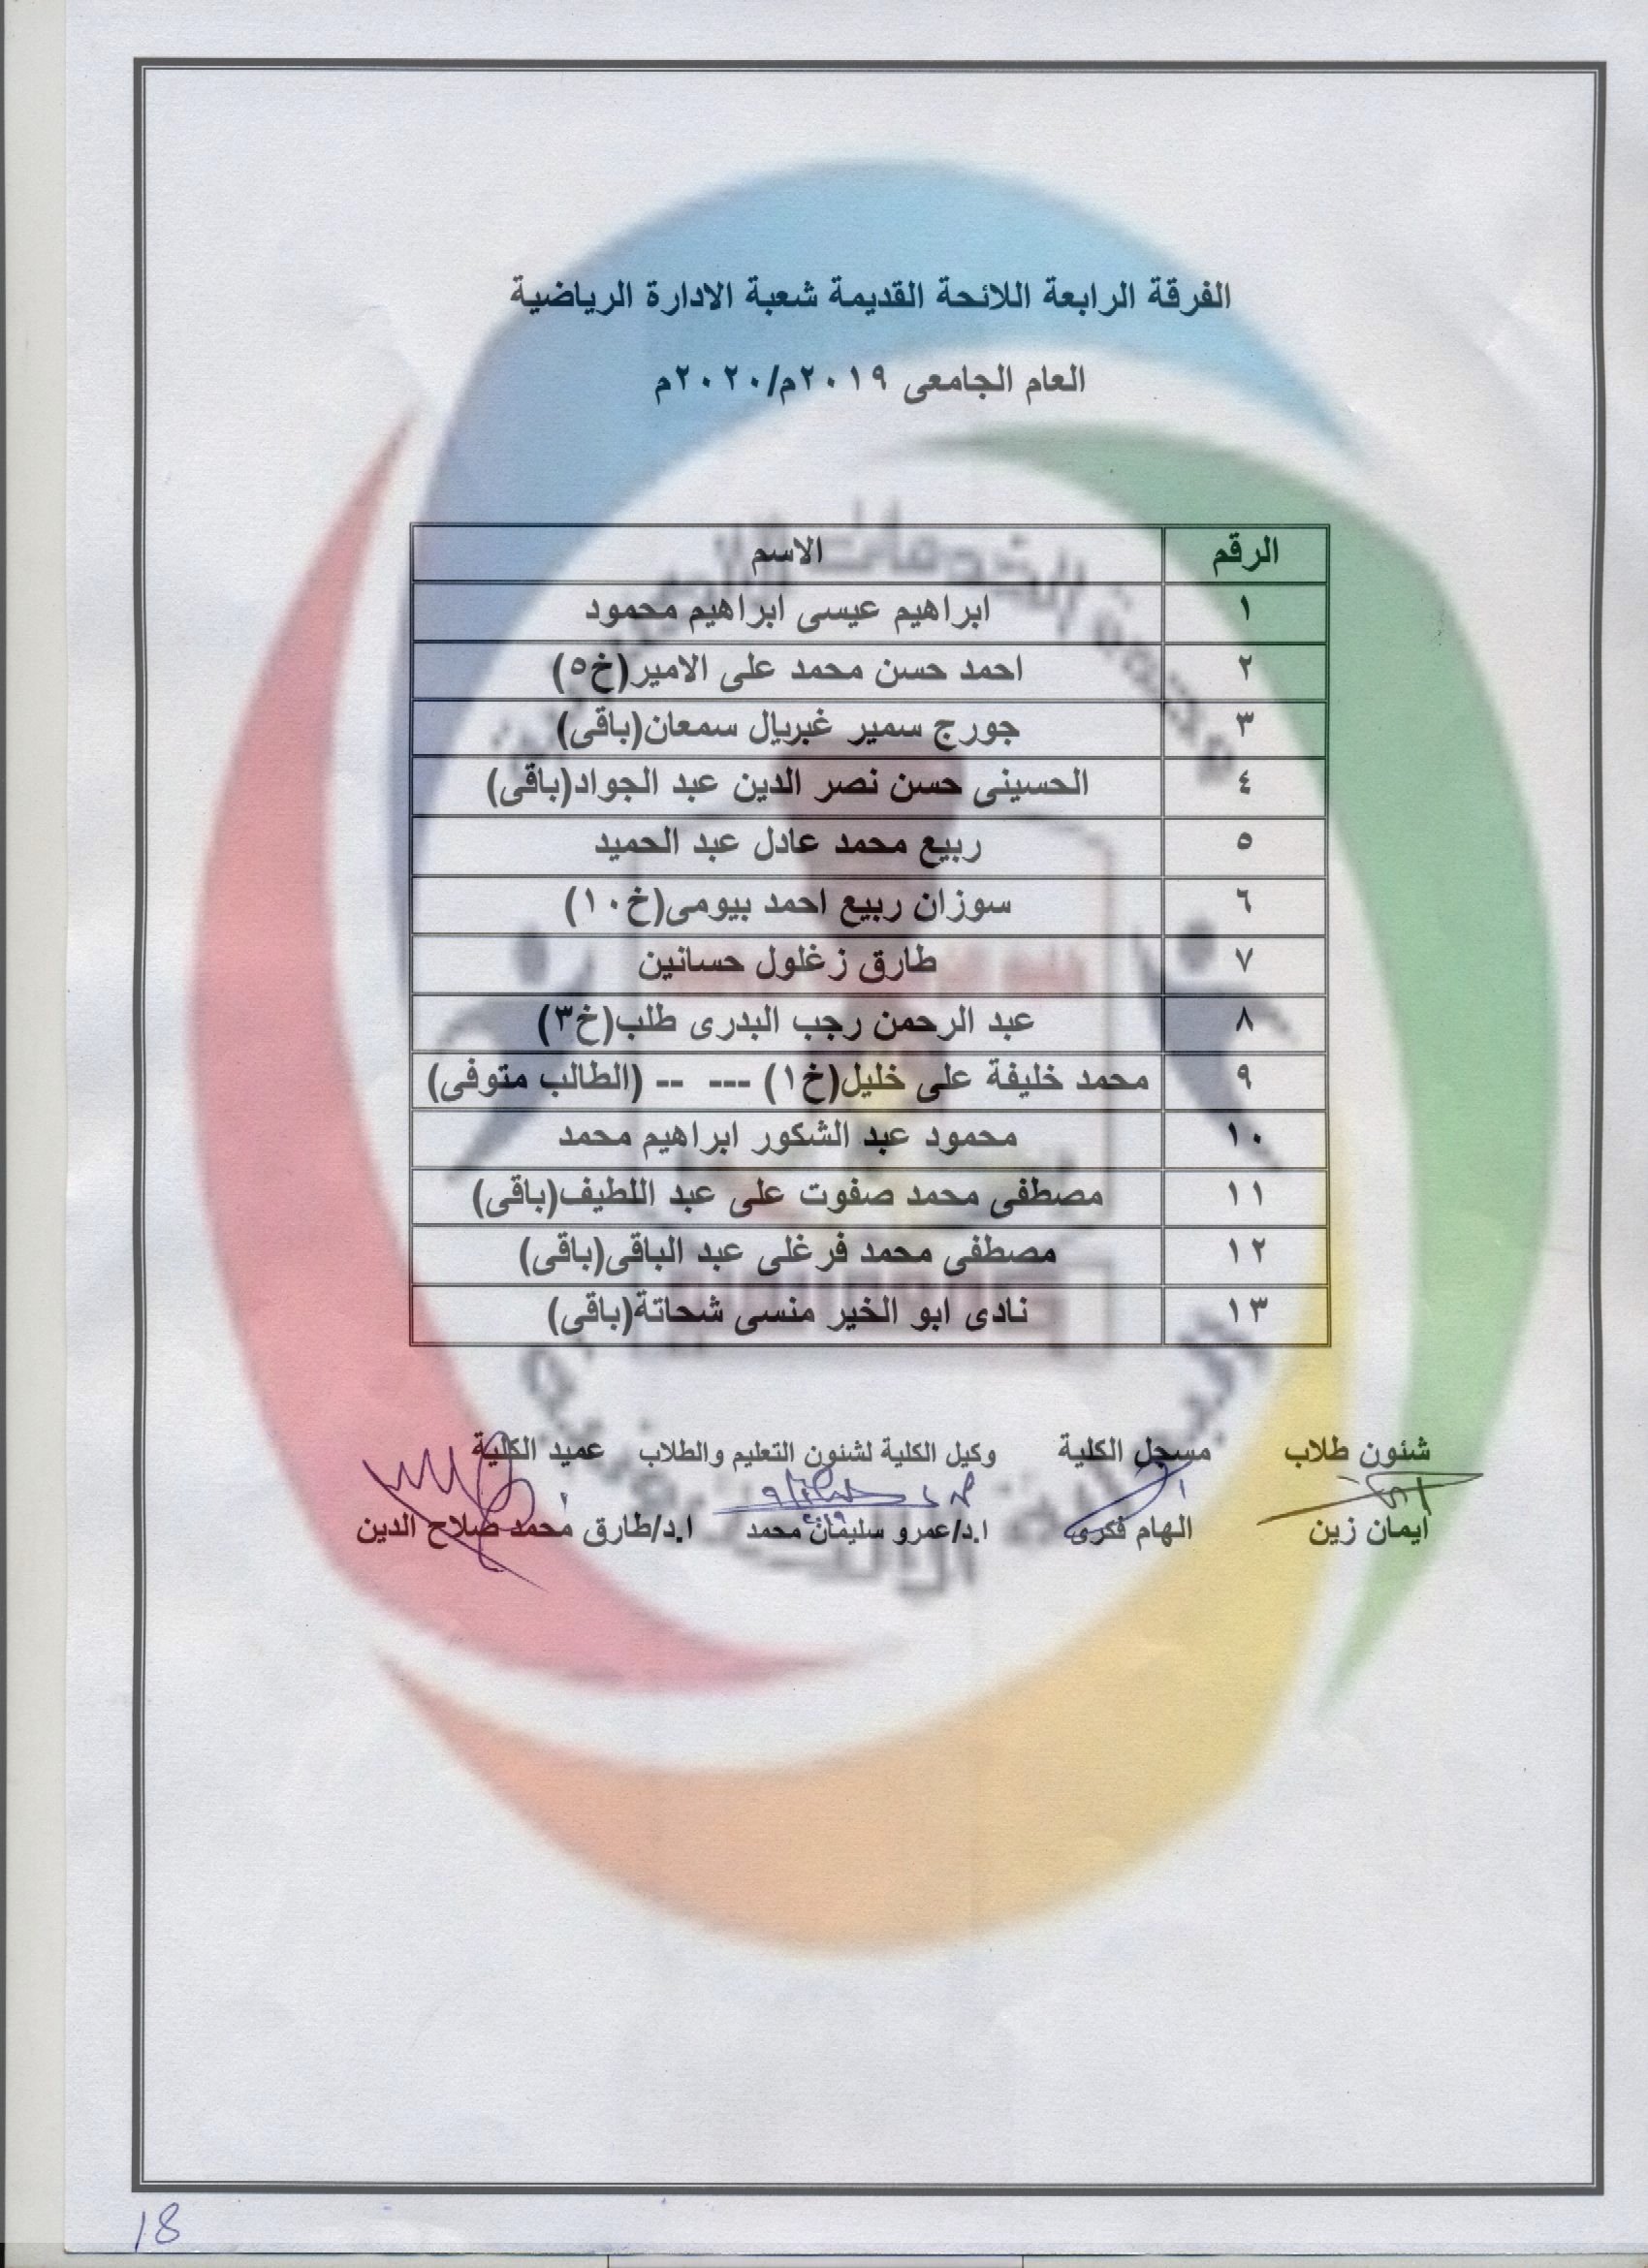 الفرقة الرابعة اللائحة القديمة شعبة الادارة الرياضية
العام الجامعى ٢٠١٩م/٢٠٢٠م
الرقم الاسم
١ ابراهيم عيسى ابراهيم محمود
٢ احمد حسن محمد على الامير(خ٥)
٣ جورج سمير غبريال سمعان(باقى)
٤ الحسينى حسن نصر الدين عبد الجواد(باقى)
٥ ربيع محمد عادل عبد الحميد
٦ سوزان ربيع احمد بيومى(خ١٠)
٧ طارق زغلول حسانين
٨ عبد الرحمن رجب البدرى طلب(خ٣)
٩ محمد خليفة على خليل(خ١) --- -- (الطالب متوفى)
١٠ محمود عبد الشكور ابراهيم محمد
١١ مصطفى محمد صفوت على عبد اللطيف(باقى)
١٢ مصطفى محمد فرغلى عبد الباقى(باقى)
١٣ نادى ابو الخير منسى شحاتة(باقى)
شئون طلاب مسجل الكلية وكيل الكلية لشئون التعليم والطلاب عميد الكلية
ايمان زين الهام فكرى ا.د/عمرو سليمان محمد ا.د/طارق محمد صلاح الدين
18